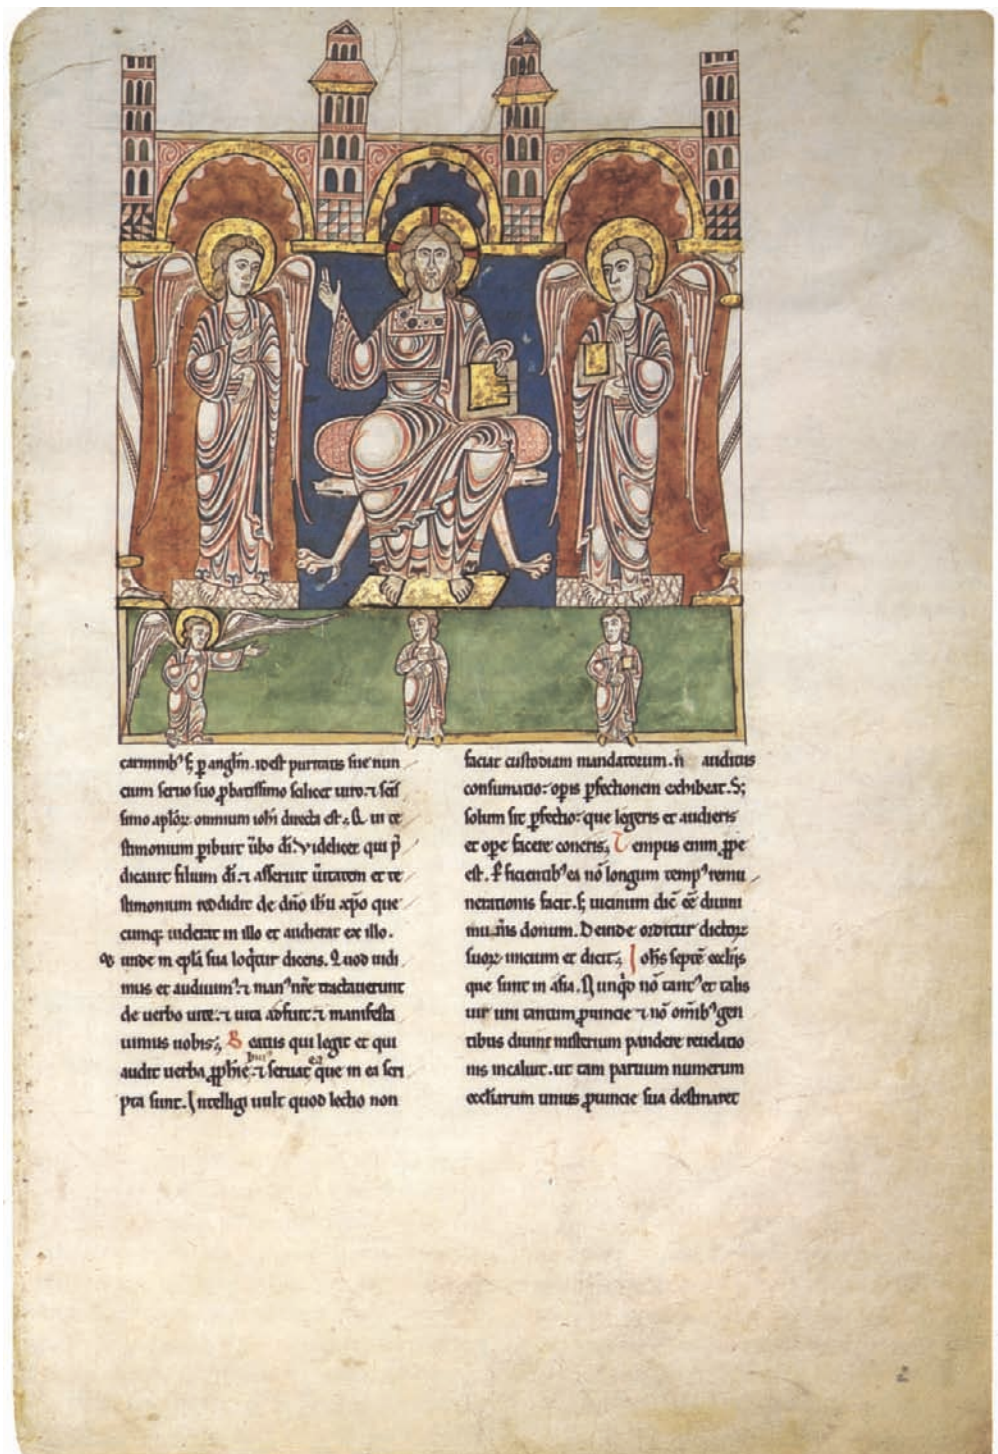 carminib᾿ s; p angłm. id est puritatis sue nun
cium seruo suo ꝓbatissimo scilicet uiro. ⁊ scis
simo aplōꝝ omnium iohi directa est;
timonium pibuit ūbo di. Videlicet qui p̄
dicauit filium di. ⁊ asseruit ūitatem et te
stimonium reddidit de dn̄o ihu xp̄o que
cumq; uiderat in illo et audierat ex illo.
unde in epła sua loq̇tur dicens. Quod uidi
mus et audiuim᾿. ⁊ man᾿ nr̄e tractauerunt
de uerbo uite. ⁊ uita adfuit. ⁊ manifesta
uimus uobis; Beatus qui legit et qui
audit uerba ꝓphie. ⁊ seruat ea que in ea scri
pta sunt. Intelligi uult quod lectio non
faciat custodiam mandatorum. n̄ auditus
consumatio: opis pfectionem exhibeat. S;
solum sit pfectio: que legeris et audieris
et ope facere coneris; Tempus enim ꝓpe
est. Pficientib᾿ ea nō longum temp᾿ remu
nerationis facit. s; uicinum dic̄ ee᷒ diuini
mun̄is donum. Deinde orditur dictoꝝ
suoꝝ inicium et dicit; Iohs septē ecclijs
que sunt in asia. Nunqd᾿ nō tant᾿ et talis
uir uni tantum ꝓuincie ⁊ nō om̄ib᾿ gen
tibus diuini misterium pandere reuelatio
nis incaluit. ut tam paruum numerum
ecctiarum unius ꝓuincie sua destinaret